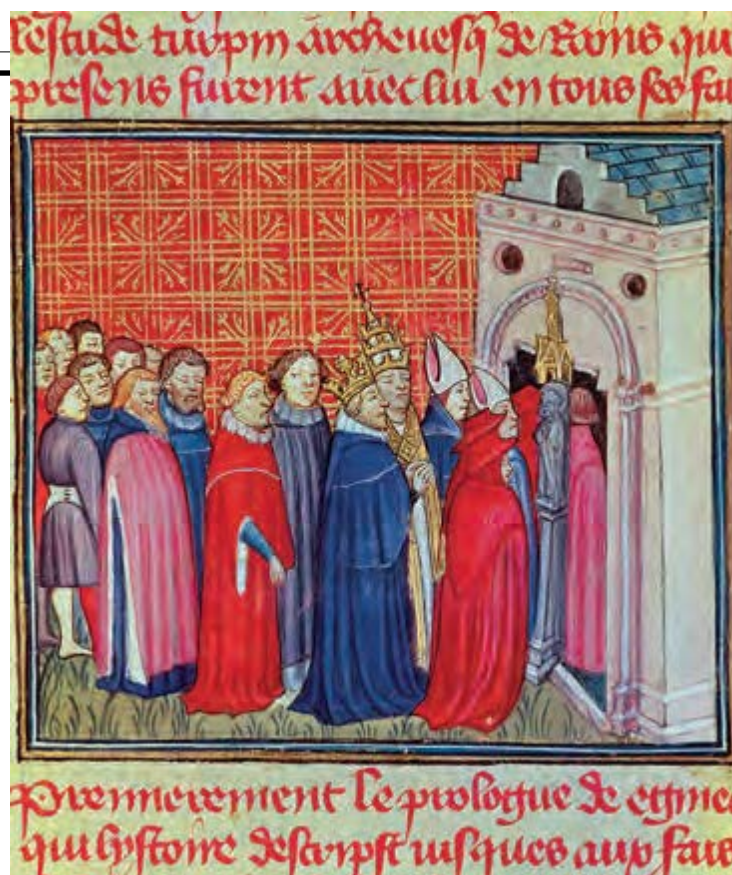 lestude turpin archevesq̃ de Rains qui
presens furent avec lui en tous ses fai
Premierement le prologue de eginc
qui hystoire descripst iusques aux fais